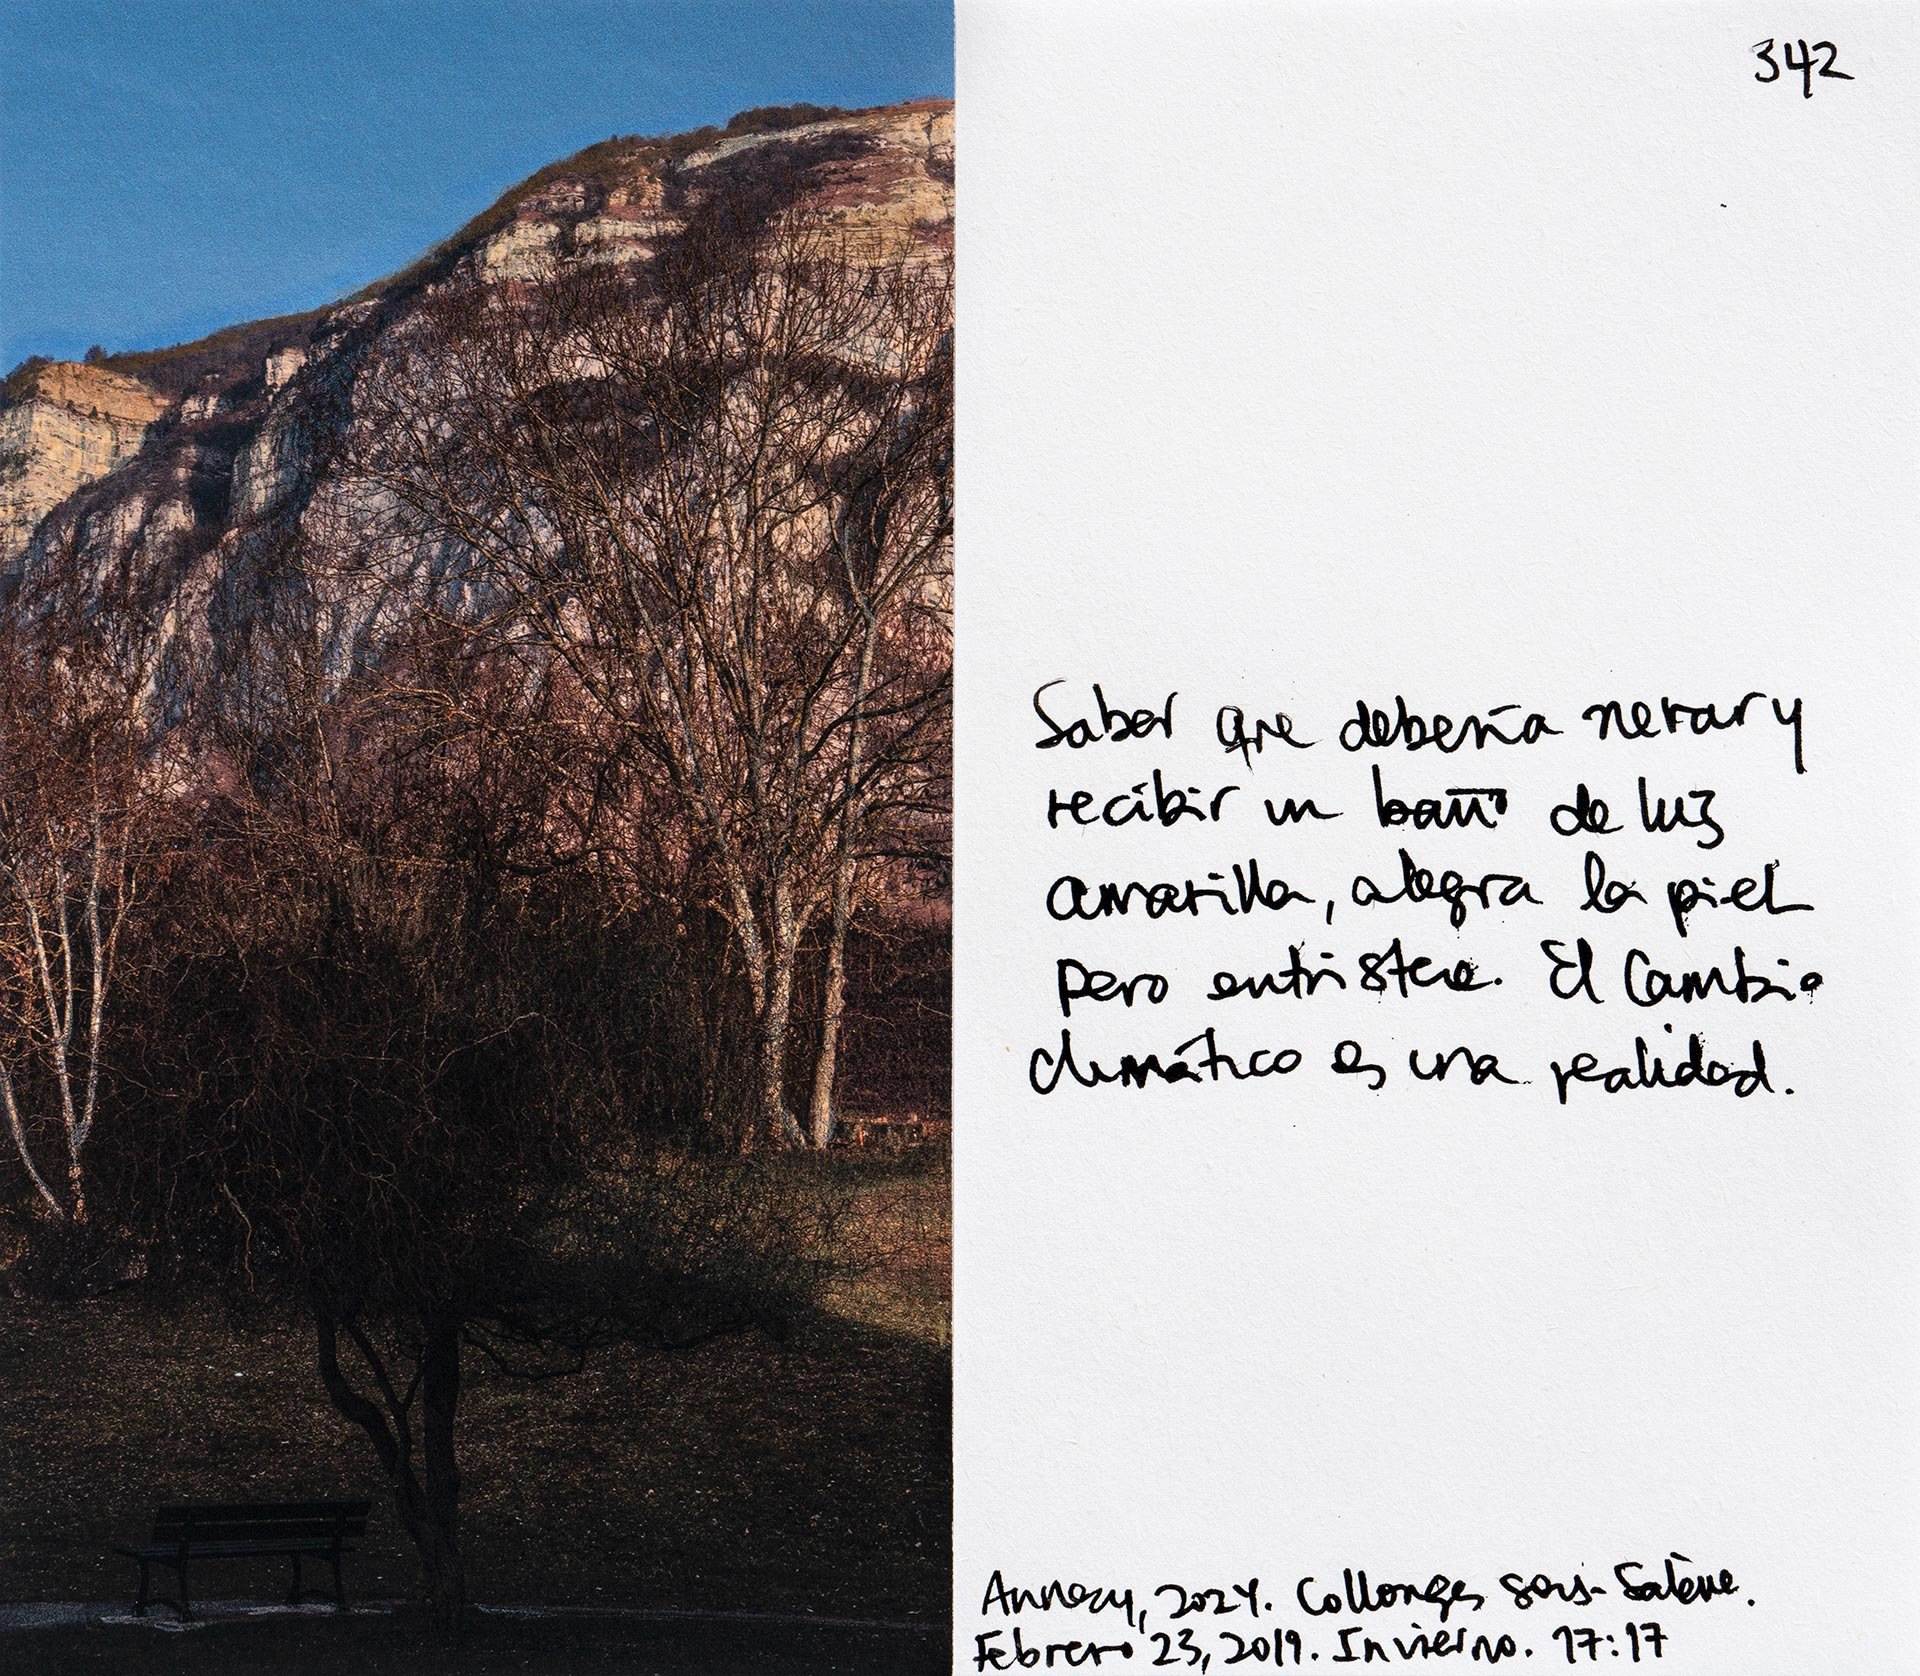 342
Saber que debería nevar y
recibir un baño de luz
amarilla, alegra la piel
pero entristece. El Cambio
climático es una realidad.
Annecy, 2024. Collonges sous-Salève.
Febrero 23, 2019. Invierno. 17:17